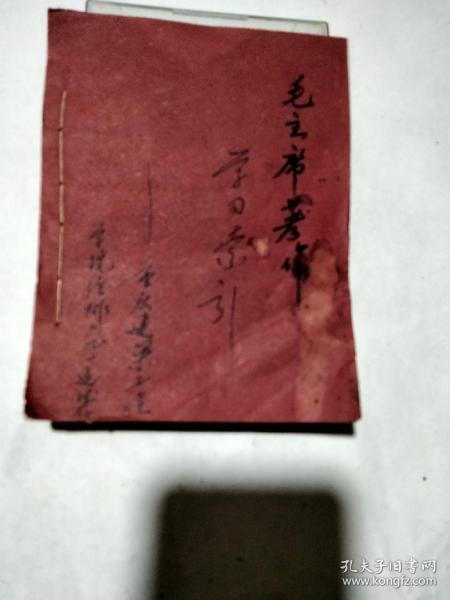 毛主席著作
学习索引
重庆建筑工程
学院
孔夫子旧书网
www.kongfz.com